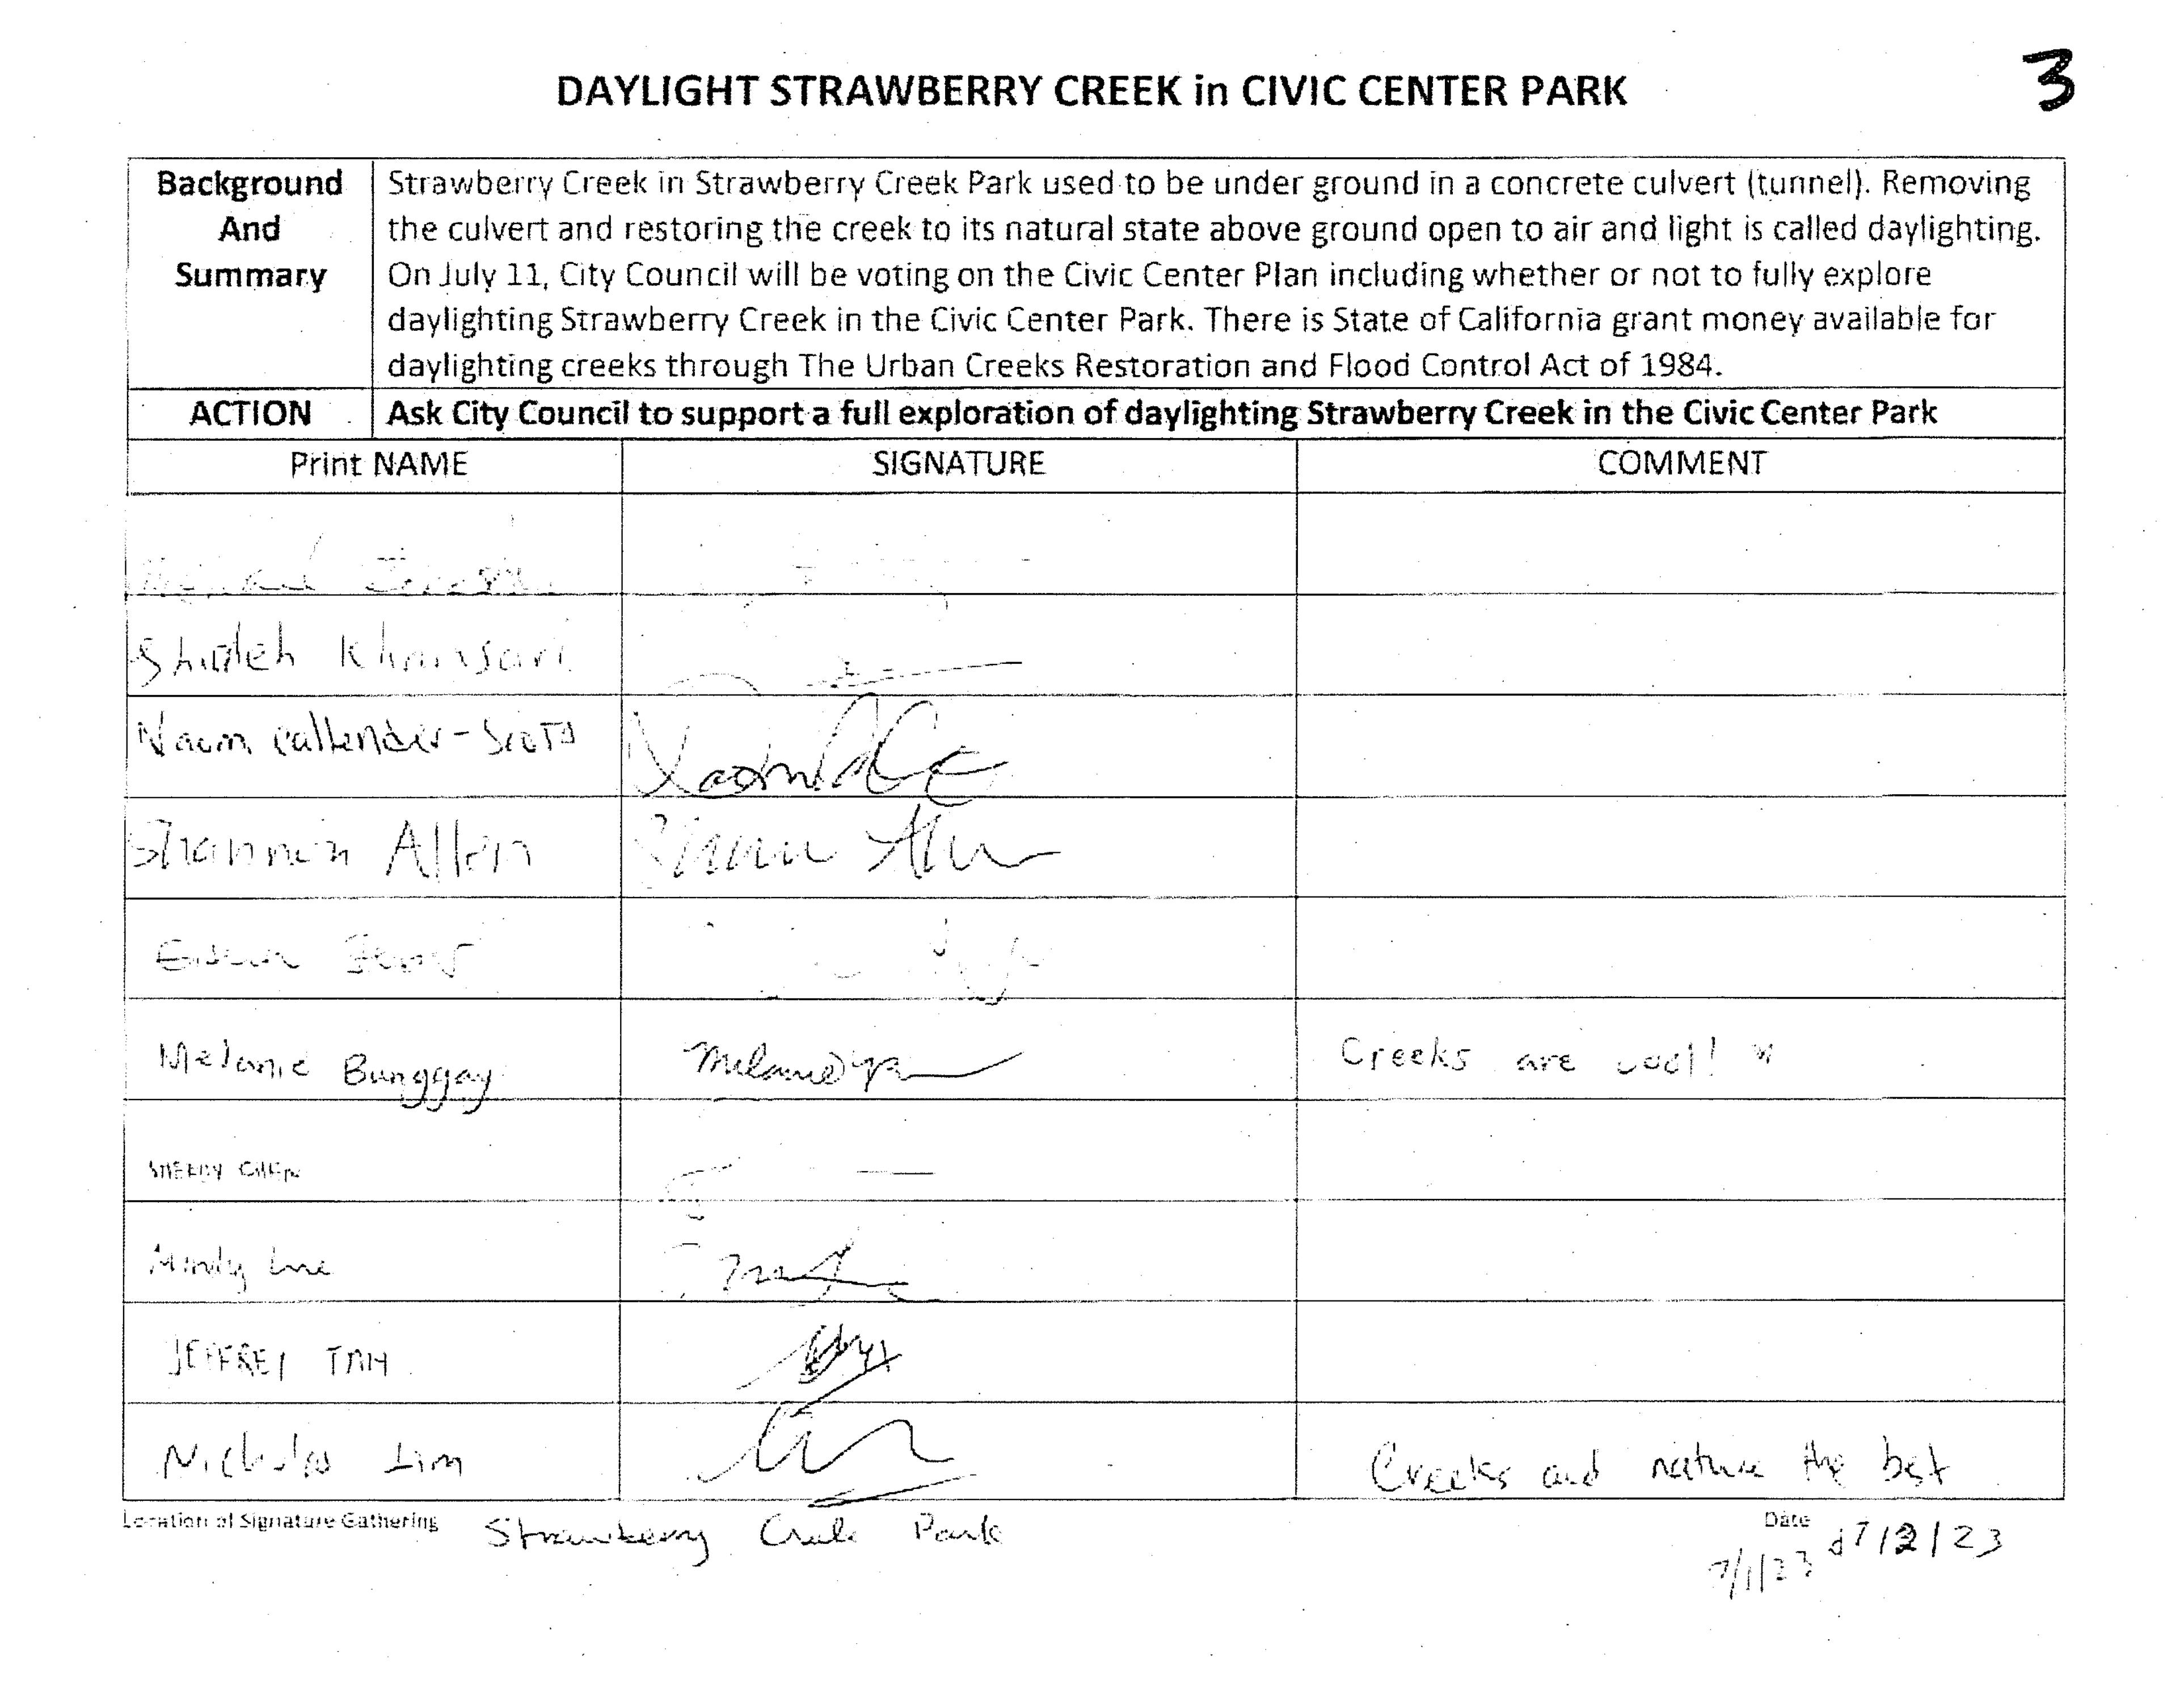 3
DAYLIGHT STRAWBERRY CREEK in CIVIC CENTER PARK
Background And Summary
Strawberry Creek in Strawberry Creek Park used to be under ground in a concrete culvert (tunnel). Removing
the culvert and restoring the creek to its natural state above ground open to air and light is called daylighting.
On July 11, City Council will be voting on the Civic Center Plan including whether or not to fully explore
daylighting Strawberry Creek in the Civic Center Park. There is State of California grant money available for
daylighting creeks through The Urban Creeks Restoration and Flood Control Act of 1984.
ACTION Ask City Council to support a full exploration of daylighting Strawberry Creek in the Civic Center Park
Print NAME SIGNATURE COMMENT
Naomi Callender-Scott
Shannon Allen
Melanie Bunggay Creeks are cool!
JEFFREY TAM
Nicholas Lim Creeks and nature the best
Location of Signature Gathering Strawberry Creek Park Date 7/2/23
7/1/23